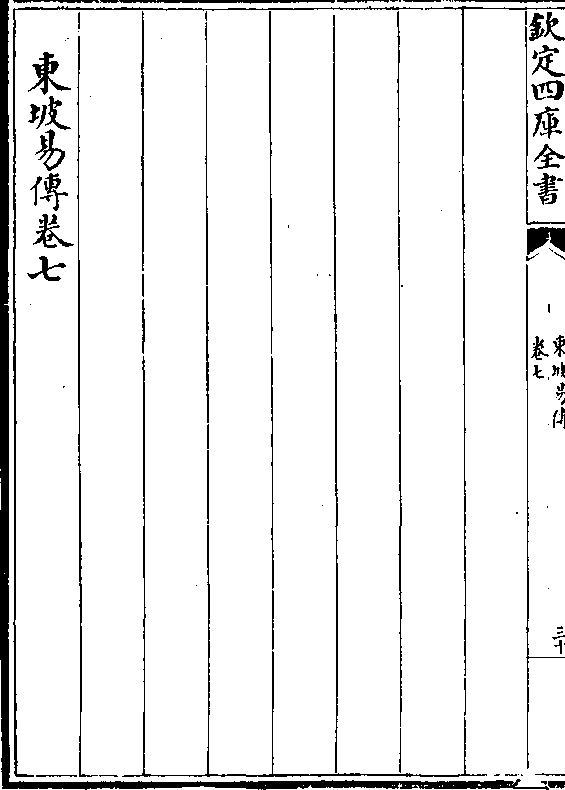 欽定四庫全書
東坡易傳
卷七
三十
東坡易傳卷七